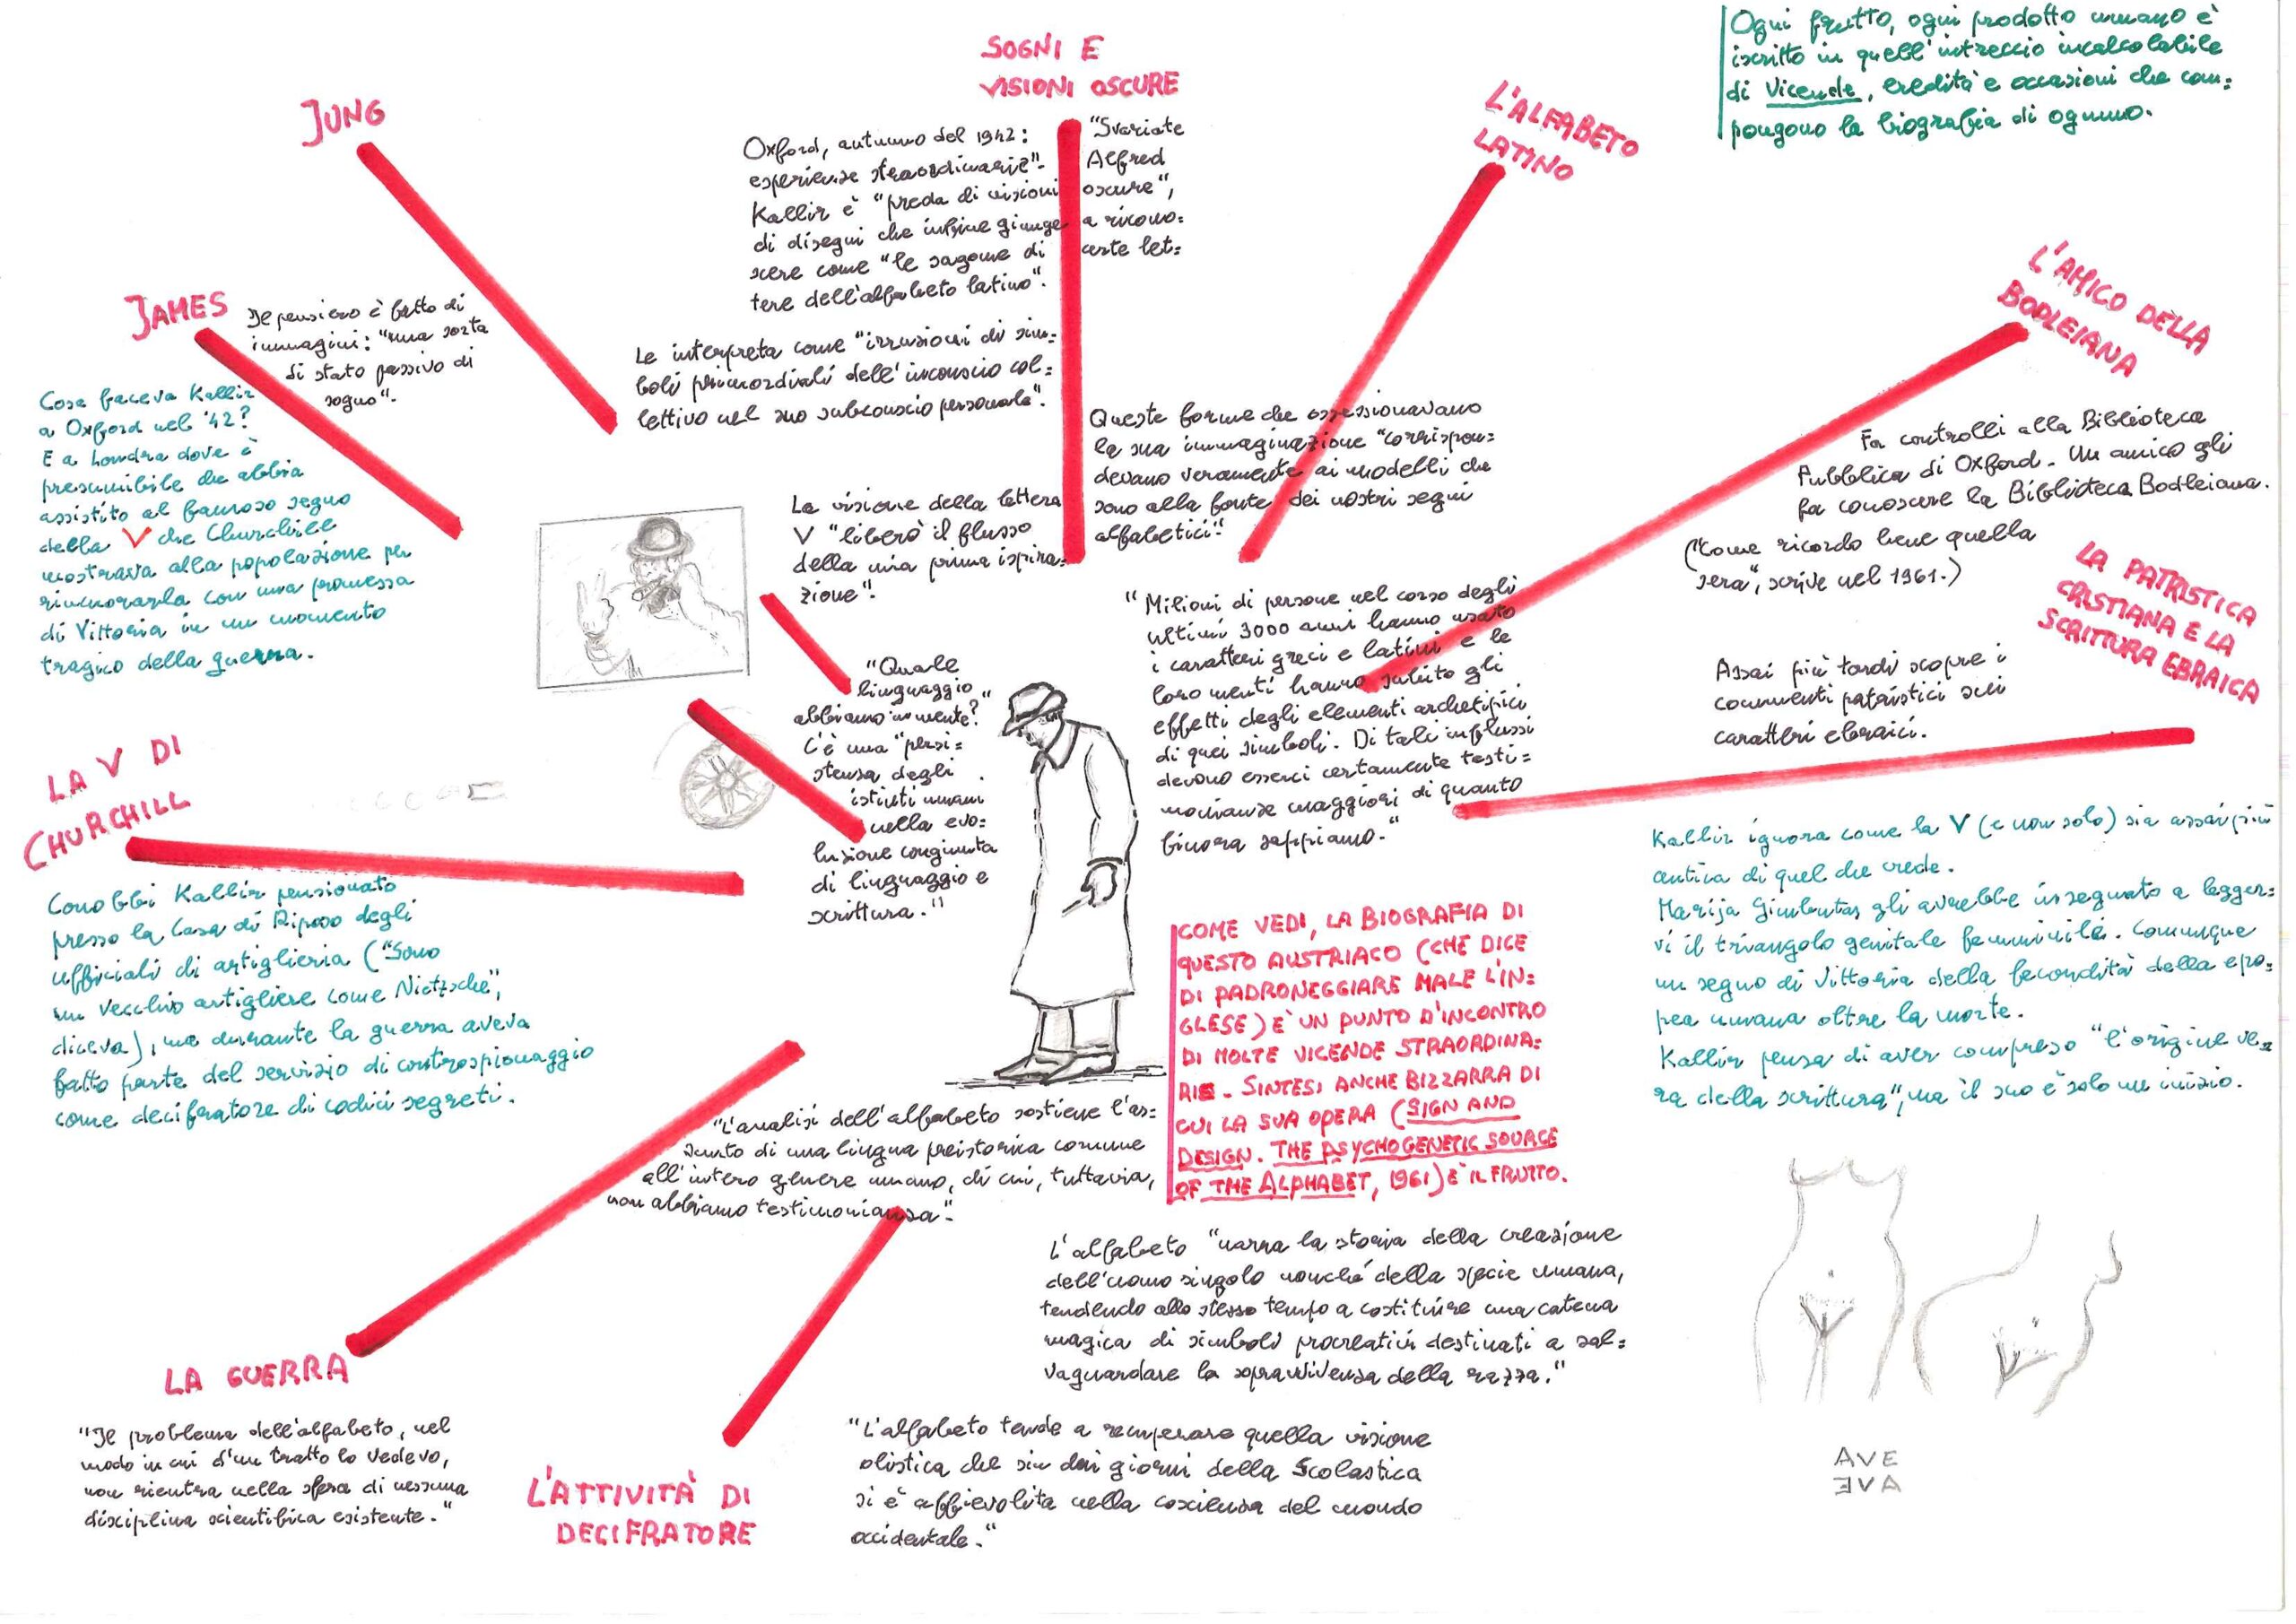 Ogni frutto, ogni prodotto umano è
iscritto in quell'intreccio incalcolabile
di Vicende, eredità e occasioni che com=
pongono la biografia di ognuno.
SOGNI E
VISIONI OSCURE
JUNG
L'ALFABETO
LATINO
Oxford, autunno del 1942: "Svariate
esperienze straordinarie". Alfred
Kallir è "preda di visioni oscure",
di disegni che infine giunge a ricono=
scere come "le sagome di certe let=
tere dell'alfabeto latino".
Le interpreta come "irruzioni di sim=
boli primordiali dell'inconscio col=
lettivo nel suo subconscio personale".
JAMES
Il pensiero è fatto di
immagini: "una sorta
di stato passivo di
sogno".
Cosa faceva Kallir
a Oxford nel '42?
E a Londra dove è
presumibile che abbia
assistito al famoso segno
della V che Churchill
mostrava alla popolazione per
rincuorarla con una promessa
di Vittoria in un momento
tragico della guerra.
L'AMICO DELLA
BODLEIANA
Queste forme che ossessionavano
la sua immaginazione "corrispon=
devano veramente ai modelli che
sono alla fonte dei nostri segni
alfabetici".
Fa controlli alla Biblioteca
Pubblica di Oxford. Un amico gli
fa conoscere la Biblioteca Bodleiana.
("Come ricordo bene quella
sera", scrive nel 1961.)
La visione della lettera
V "liberò il flusso
della mia prima ispira=
zione".
"Milioni di persone nel corso degli
ultimi 3000 anni hanno usato
i caratteri greci e latini e le
loro menti hanno subito gli
effetti degli elementi archetipici
di quei simboli. Di tali influssi
devono esserci certamente testi=
monianze maggiori di quanto
finora sappiamo."
LA PATRISTICA
CRISTIANA E LA
SCRITTURA EBRAICA
Assai più tardi scopre i
commenti patristici sui
caratteri ebraici.
"Quale
linguaggio
abbiamo in mente?"
C'è una "persi=
stenza degli
istinti umani
nella evo=
luzione congiunta
di linguaggio e
scrittura."
LA V DI
CHURCHILL
Conobbi Kallir pensionato
presso la Casa di Riposo degli
ufficiali di artiglieria ("Sono
un vecchio artigliere come Nietzsche",
diceva), ma durante la guerra aveva
fatto parte del servizio di controspionaggio
come decifratore di codici segreti.
Kallir ignora come la V (e non solo) sia assai più
antica di quel che crede.
Marija Gimbutas gli avrebbe insegnato a legger=
vi il triangolo genitale femminile. Comunque
un segno di Vittoria della fecondità della epo=
pea umana oltre la morte.
Kallir pensa di aver compreso "l'origine ve=
ra della scrittura", ma il suo è solo un inizio.
COME VEDI, LA BIOGRAFIA DI
QUESTO AUSTRIACO (CHE DICE
DI PADRONEGGIARE MALE L'IN=
GLESE) E' UN PUNTO D'INCONTRO
DI MOLTE VICENDE STRAORDINA=
RIE. SINTESI ANCHE BIZZARRA DI
CUI LA SUA OPERA (SIGN AND
DESIGN. THE PSYCHOGENETIC SOURCE
OF THE ALPHABET, 1961) E' IL FRUTTO.
"L'analisi dell'alfabeto sostiene l'as=
sunto di una lingua preistorica comune
all'intero genere umano, di cui, tuttavia,
non abbiamo testimonianza".
L'alfabeto "narra la storia della creazione
dell'uomo singolo nonché della specie umana,
tendendo allo stesso tempo a costituire una catena
magica di simboli procreativi destinati a sal=
vaguardare la sopravvivenza della razza."
LA GUERRA
"Il problema dell'alfabeto, nel
modo in cui d'un tratto lo vedevo,
non rientra nella sfera di nessuna
disciplina scientifica esistente."
L'ATTIVITÀ DI
DECIFRATORE
"L'alfabeto tende a recuperare quella visione
olistica che sin dai giorni della Scolastica
si è affievolita nella coscienza del mondo
occidentale."
AVE
EVA